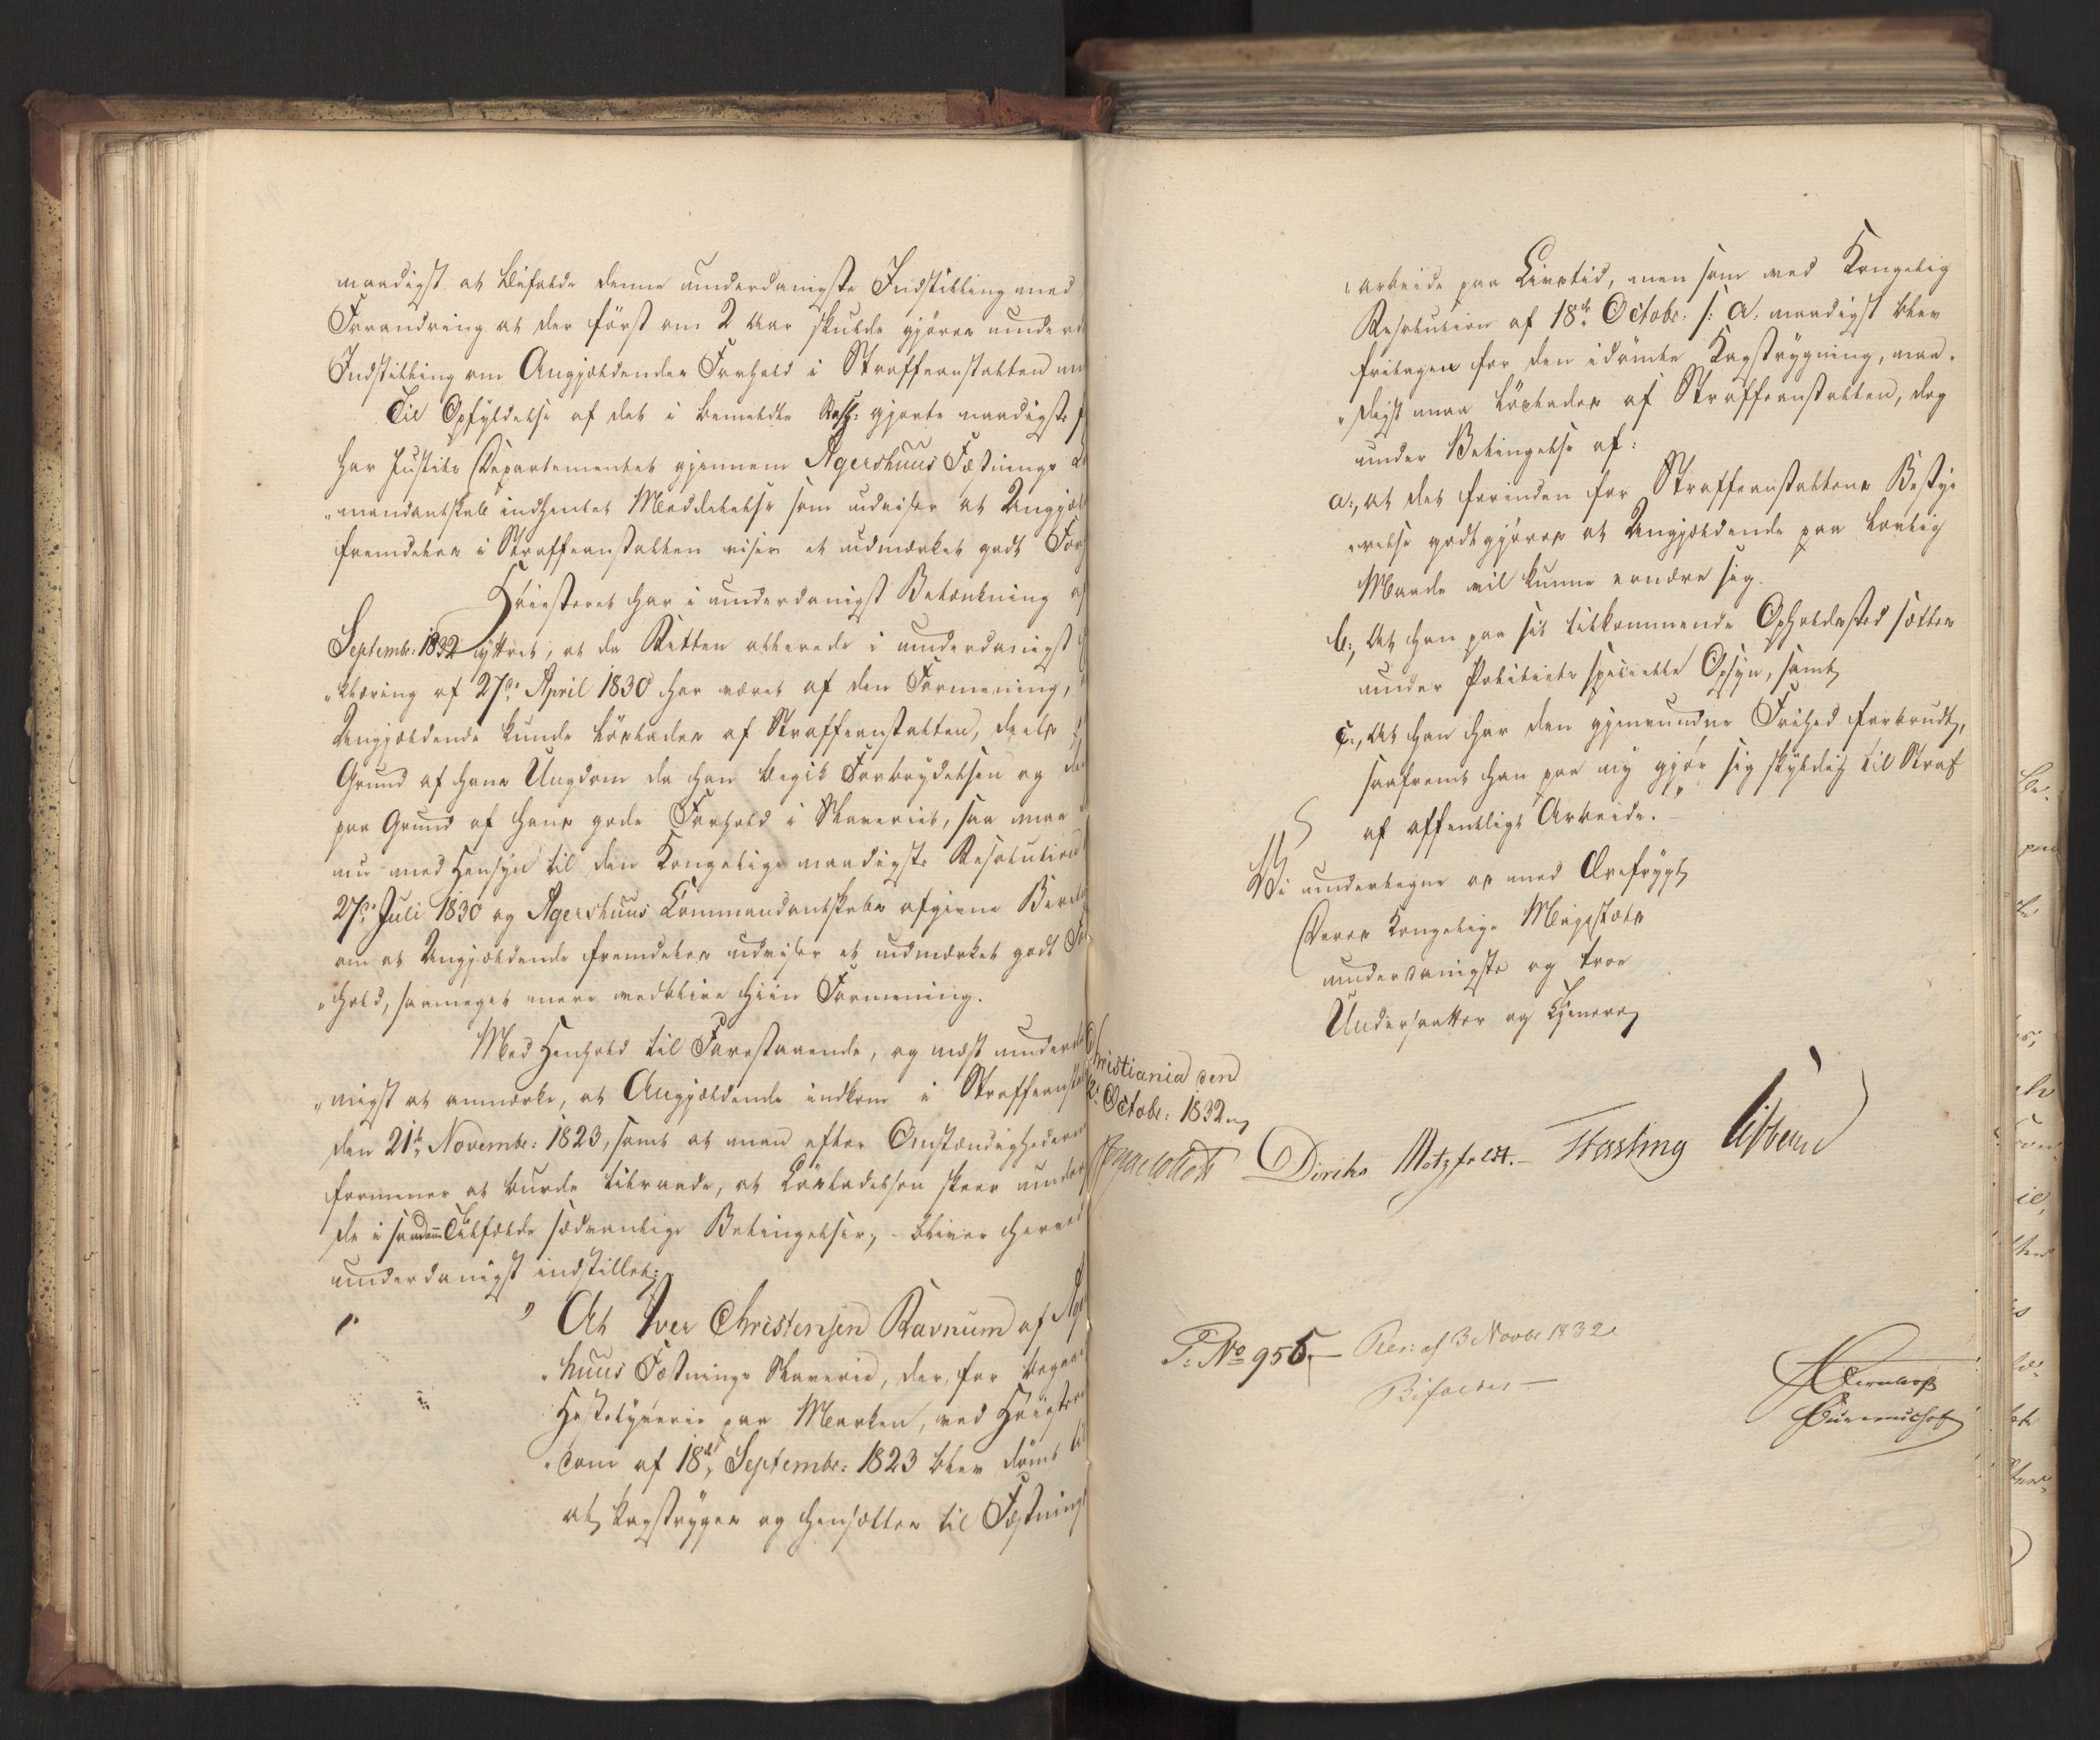 naadigst at bifalde denne underdanigste Indstilling med
Forandring at der först om 2 Aar skulde gjöres underd
Indstilling om Angjældendes Forhold i Straffeanstalten
Til Opfyldelse af det i bemeldte Resol: gjorte naadigste
har Justits Departementet gjennem Agershuus Fæstnings
„mandantskab indhentet Meddelelse som udviser at Angjæl
fremdeles i Straffeanstalten viser et udmærket godt For
Höiesteret har i underdanigst Betænkning af
Septembr: 1832 yttret, at da Retten allerede i underdanigst
„klæring af 27de April 1830 har været af den Formening,
Angjældende kunde löslades af Straffeanstalten, deels
Grund af hans Ungdom da han begik Forbrydelsen og
paa Grund af hans gode Forhold i Slaveriet, saa maa
nu med Hensyn til den Kongelige naadigste Resolution
27de Juli 1830 og Agershuus Commandantskabs afgivne Beret
om at Angjældende fremdeles udviser et udmærket godt Fo
„hold, saameget mere vedblive hiin Formening.
Med Henhold til Forestaaende, og næst underda
„nigst at anmærke, at Angjældende indkom i Straffeanstal
den 21de Novembr: 1823, samt at man efter Omstændighederne
formener at burde tilraade, at Lösladelsen skeer under
de i saadanne Tilfælde sædvanlige Betingelser, - bliver herved
underdanigst indstillet:
„ At Iver Christensen Ravnum af Ager
„huus Fæstnings Slaverie, der, for begaaet
Hestetyverie paa Marken, ved Höiesterets
„dom af 18de Septembr: 1823 blev dömt til
at kagstryges og hensættes til Fæstnings
arbeide paa Livstid, men som ved Kongelig
Resolution af 18de Octobr: s: A: naadigst blev
fritagen for den idömte Kagstrygning, naa„
„digst maa löslades af Straffeanstalten, dog
under Betingelse af:
a:, at det forinden for Straffeanstaltens Besty„
„relse godtgjöres at Angjældende paa lovlig
Maade vil kunne ernære sig.
b:, At han paa sit tilkommende Opholdssted sættes
under Politiets specielle Opsyn, samt
c:, At han har den gjenvundne Frihed forbrudt,
saafremt han paa ny gjör sig skyldig til Straf
af offentligt Arbeide.
Vi undertegne os med Ærefrygt
Deres Kongelige Majestæts
underdanigste og troe
Undersaatter og Tjenere
Christiania den
Octobr: 1832
Diriks Motzfeldt. Fasting Vibbe
P: No 955. Res: af 3 Novbr 1832
Bifaldes